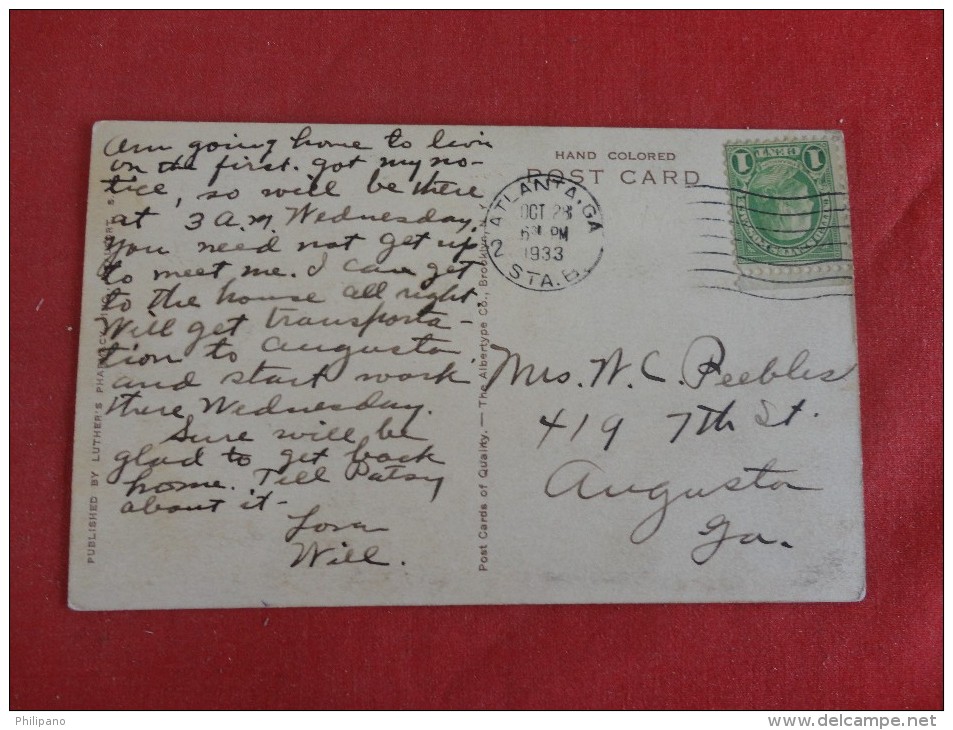 am going home to live
on the first. got my no-
tice, so will be there
at 3 A.M. Wednesday.
You need not get up
to meet me. I can get
to the house all right.
Will get transporta-
tion to Augusta
and start work
there Wednesday.
Sure will be
glad to get back
home. Tell Patsy
about it -
Love
Will.
PUBLISHED BY LUTHER'S PHARMACY, INC.
Post Cards of Quality. — The Albertype Co., Brooklyn, N.Y.
HAND COLORED
POST CARD
ATLANTA, GA
2
OCT 28
6 PM
1933
STA. B.
1 CENT 1
Mrs. W. C. Peebles
419 7th St.
Augusta
Ga.
Philipano
www.delcampe.net